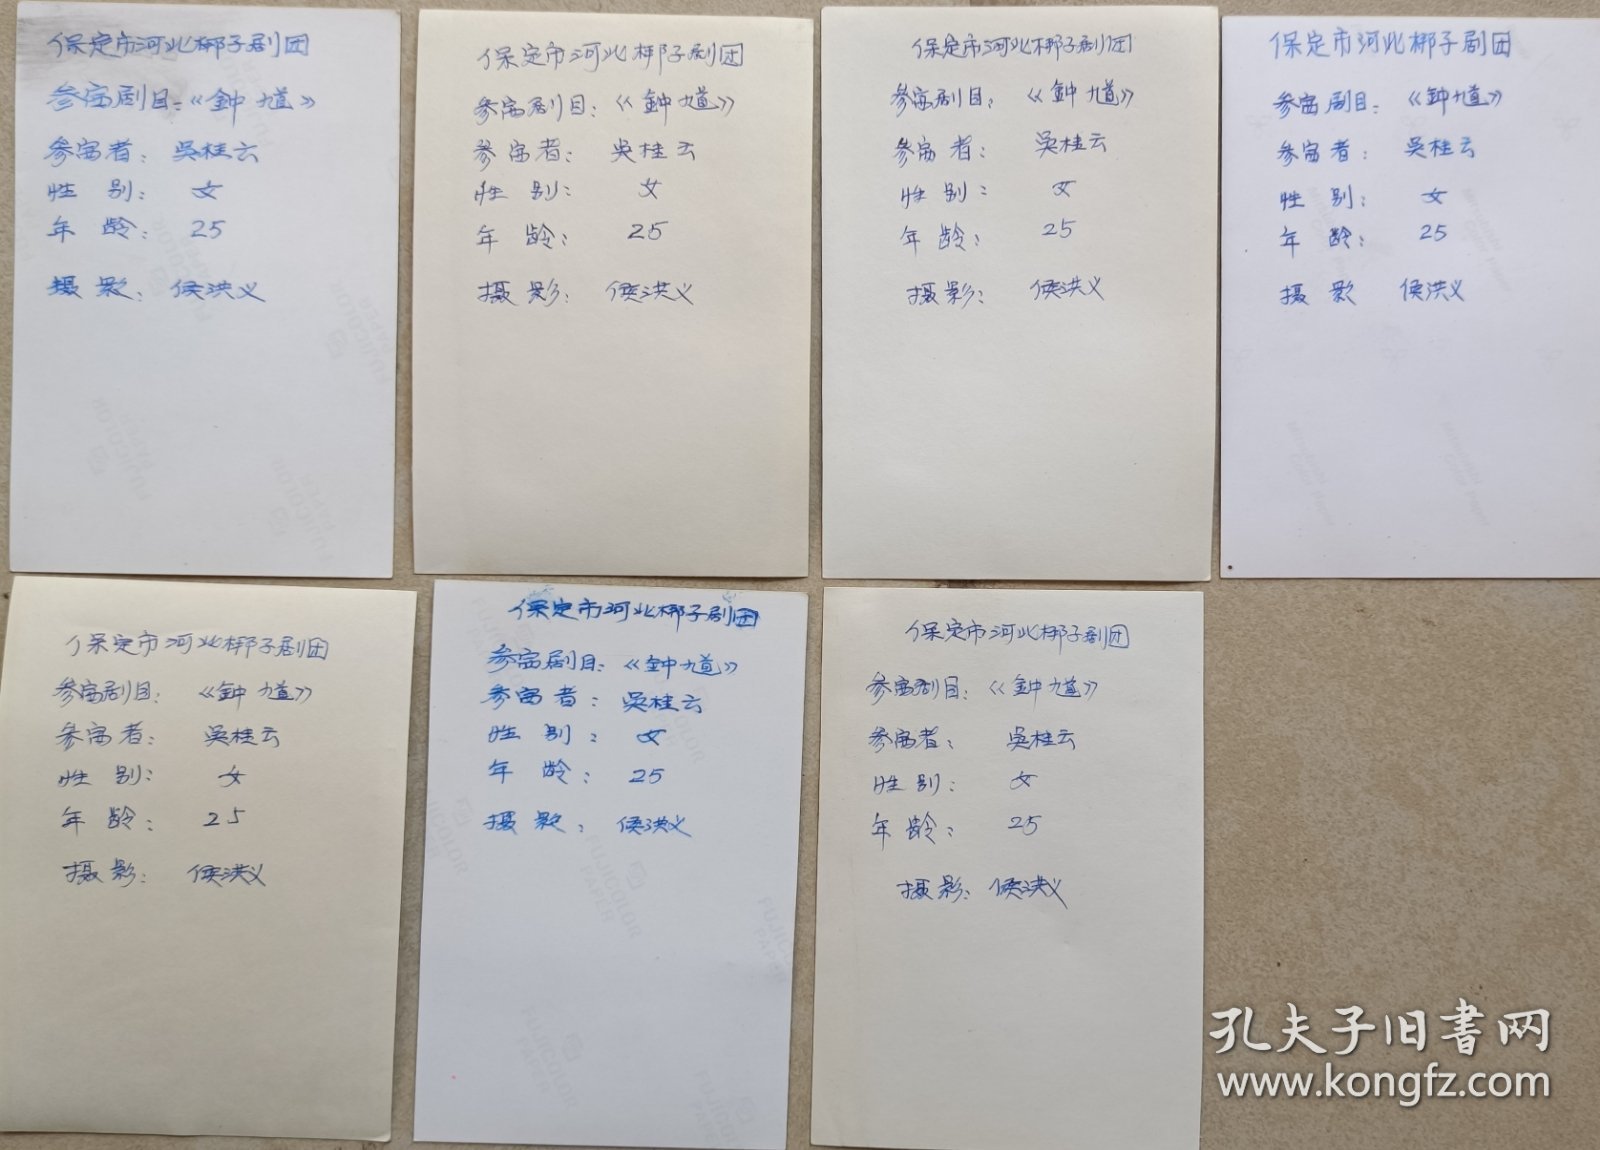 保定市河北梆子剧团
参赛剧目:《鈡馗》
参赛者: 吴桂云
性 别: 女
年 龄: 25
摄 影: 侯洪义
保定市河北梆子剧团
参赛剧目:《鈡馗》
参赛者: 吴桂云
性 别: 女
年 龄: 25
摄 影: 侯洪义
保定市河北梆子剧团
参赛剧目:《鈡馗》
参赛者: 吴桂云
性 别: 女
年 龄: 25
摄 影: 侯洪义
保定市河北梆子剧团
参赛剧目:《鈡馗》
参赛者: 吴桂云
性 别: 女
年 龄: 25
摄 影 侯洪义
保定市河北梆子剧团
参赛剧目:《鈡馗》
参赛者: 吴桂云
性 别: 女
年 龄: 25
摄 影: 侯洪义
保定市河北梆子剧团
参赛剧目:《鈡馗》
参赛者: 吴桂云
性 别: 女
年 龄: 25
摄 影: 侯洪义
保定市河北梆子剧团
参赛剧目:《鈡馗》
参赛者: 吴桂云
性 别: 女
年 龄: 25
摄 影: 侯洪义
FUJICOLOR
PAPER
孔夫子旧书网
www.kongfz.com